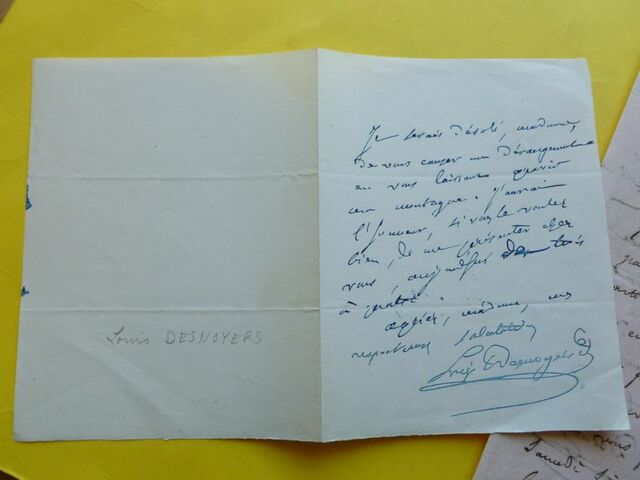 Louis DESNOYERS
Je serais désolé, madame,
de vous causer un dérangement
en vous laissant gravir
une montagne. J'aurai
l'honneur, si vous le voulez
bien, de me présenter chez
vous, aujourd'hui de trois
à quatre.
agréez, madame, mes
respectueuses salutations
Louis Desnoyers